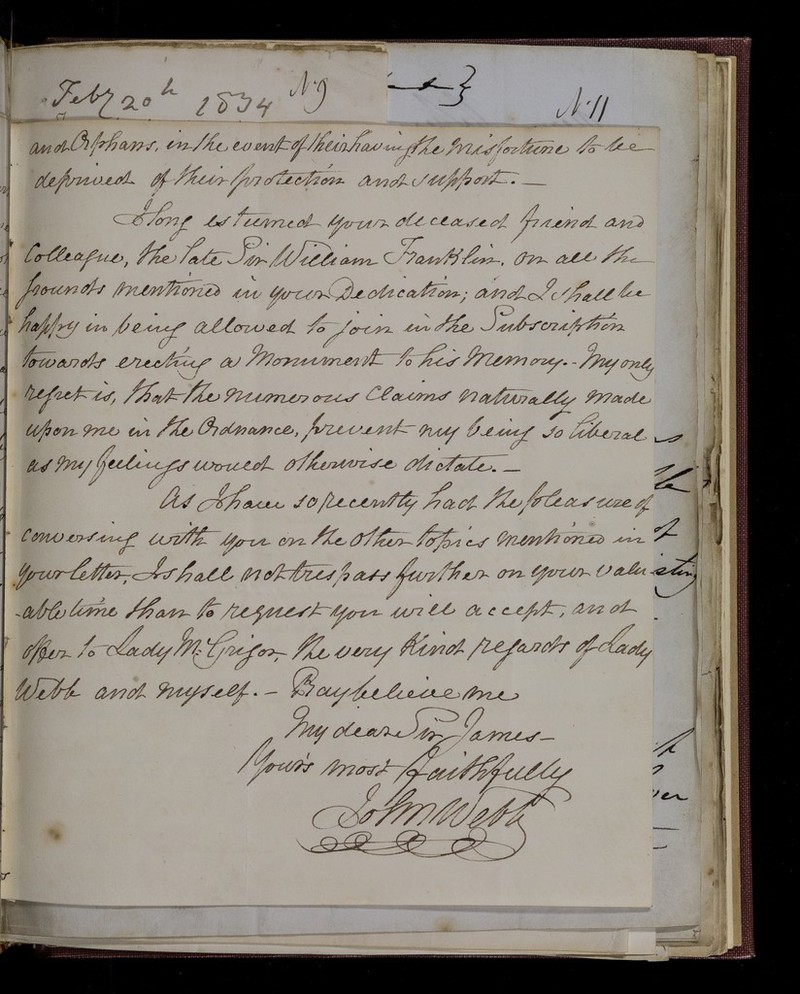 Feby 20th 1834 No 9
No 11
and Orphans, in the event of their having the Misfortune to be
deprived of their protection and support. —
I long esteemed your deceased friend and
Colleague, the late Sir William Franklin, on all the
grounds mentioned in your Dedication; and I shall be
happy in being allowed to join in the Subscription
towards erecting a Monument to his Memory. - My only
regret is, that the numerous Claims naturally made
upon me in the Ordnance, prevent my being so liberal
as my feelings would otherwise dictate. —
As I have so recently had the pleasure of
conversing with you on the other topics mentioned in
your letter, I shall not trespass further on your valu
-able time than to request you will accept, and
offer to Lady McGrigor, the very kind regards of Lady
Webb and myself. - Pray believe me
My dear Sir James -
Your's most faithfully
John Webb